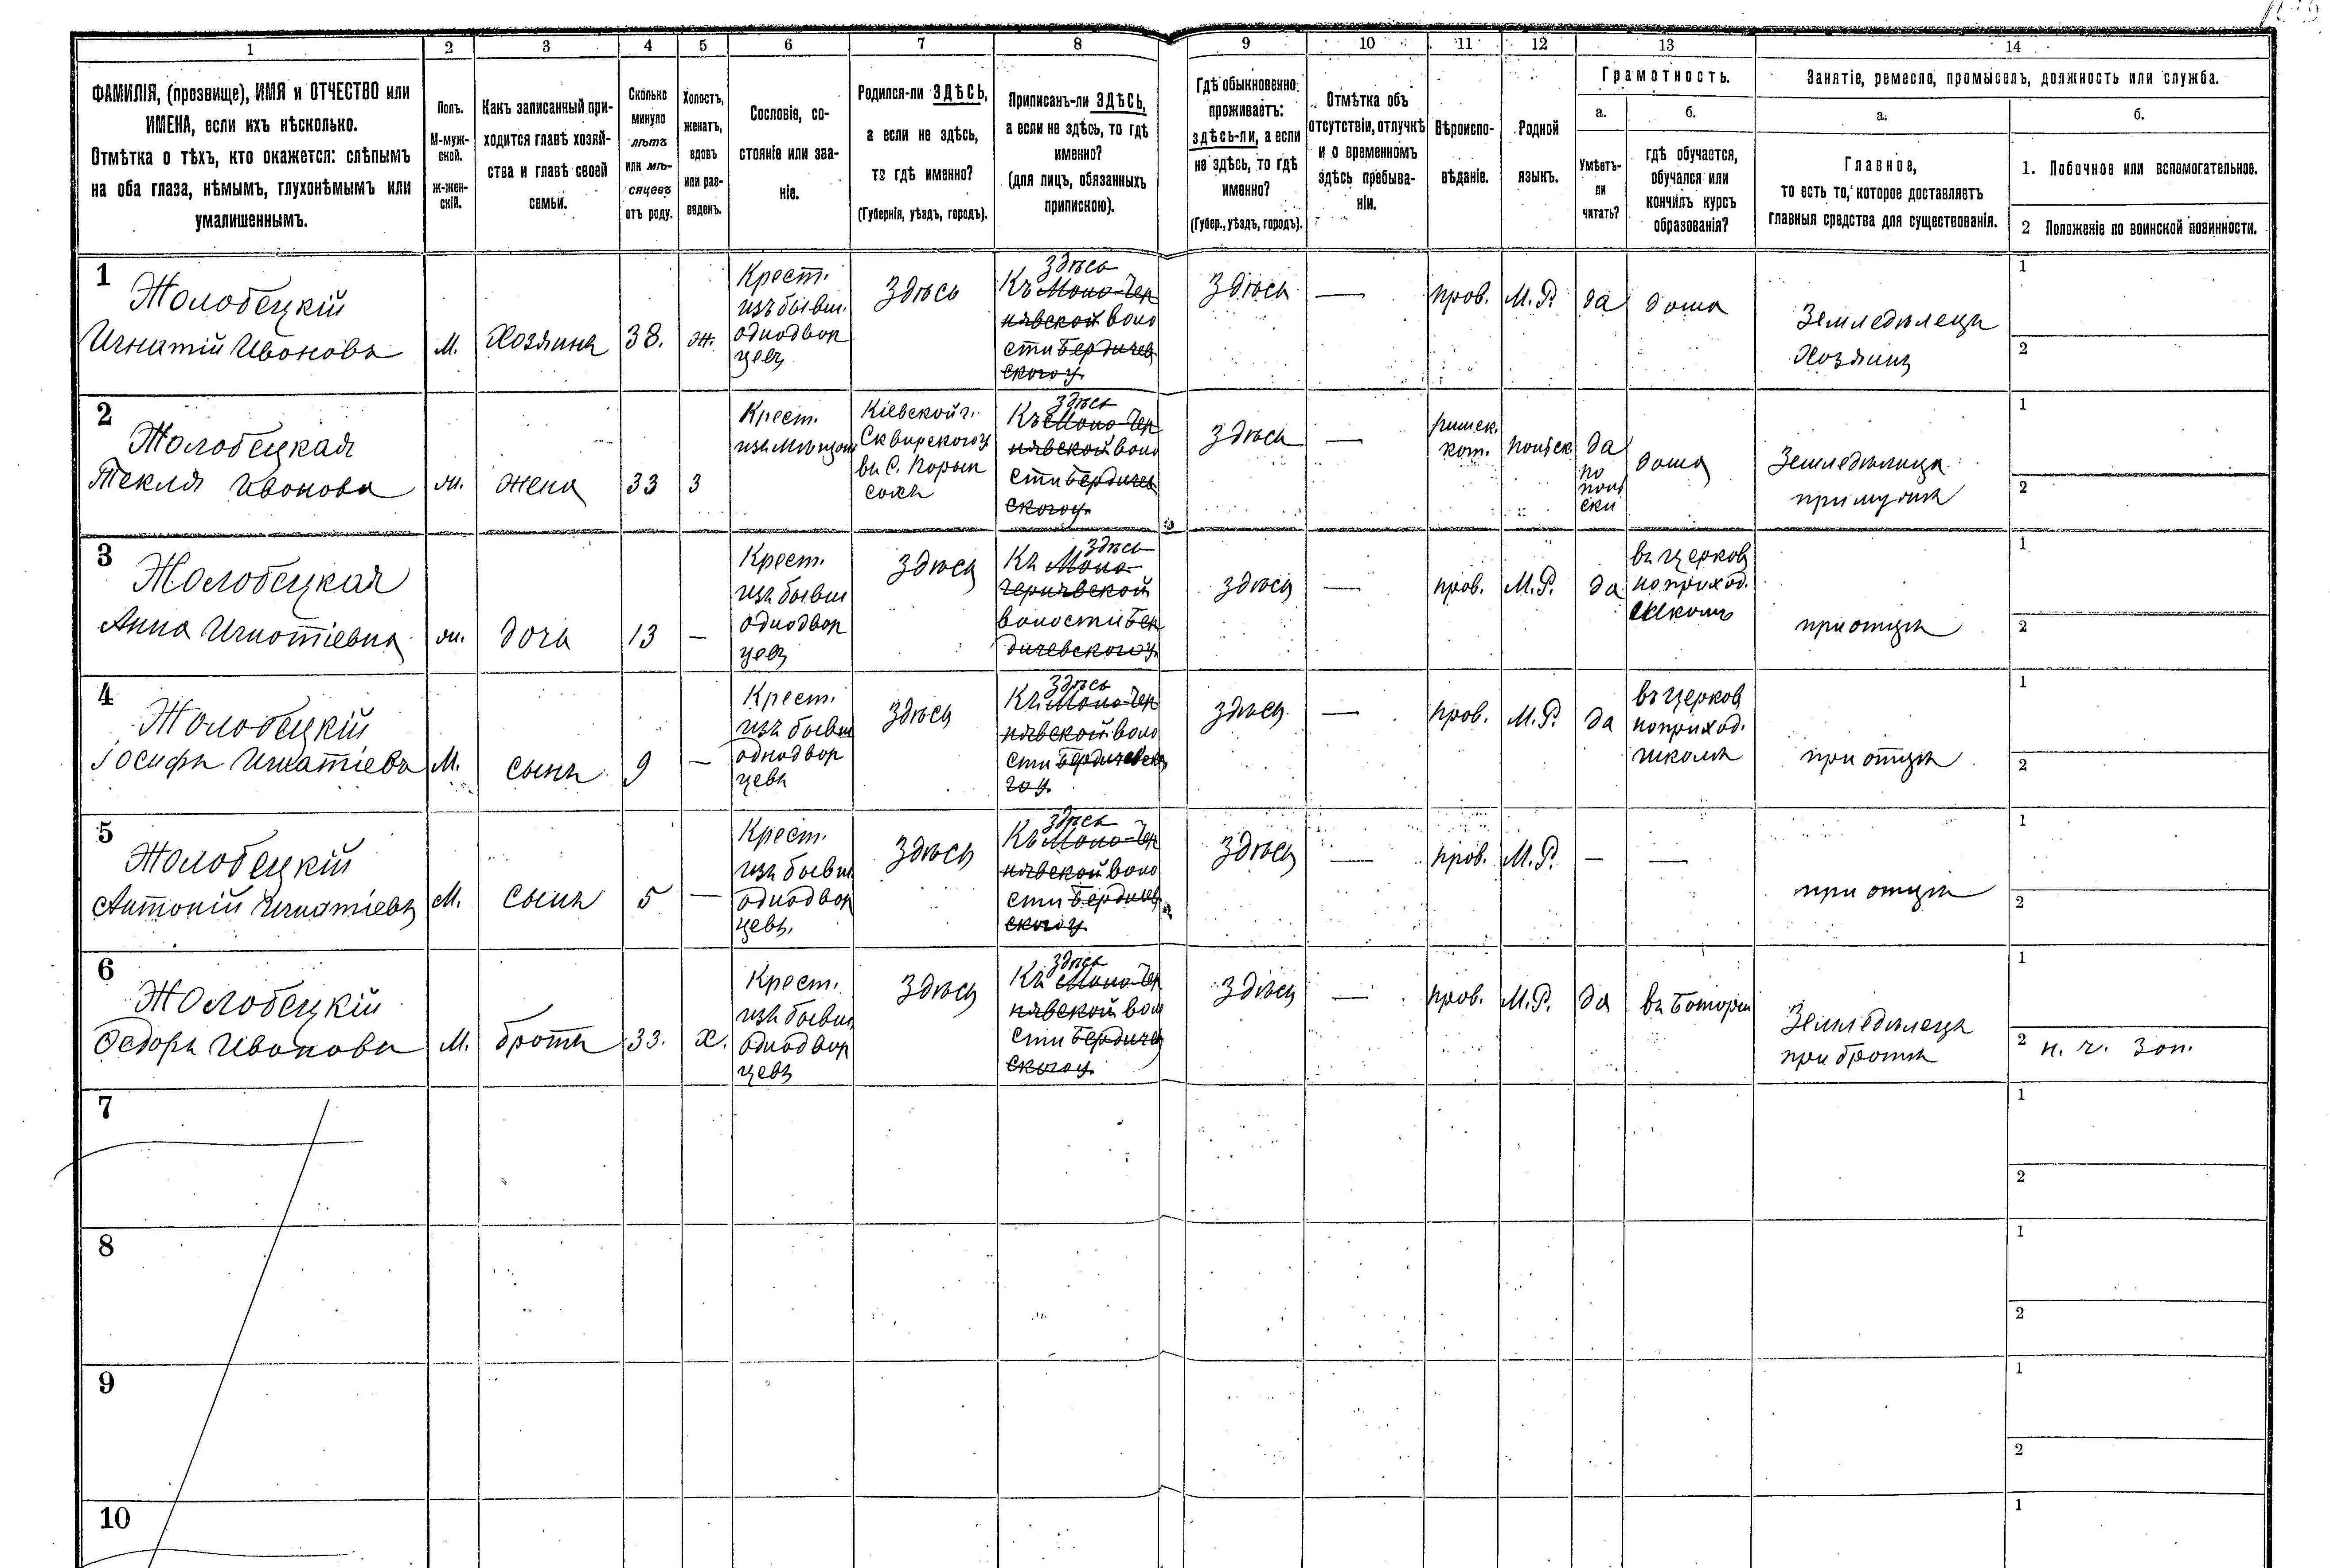 1 2 3 4 5 6 7 8 9 10 11 12 13 14
ФАМИЛІЯ, (прозвище), ИМЯ и ОТЧЕСТВО или
ИМЕНА, если ихъ нѣсколько.
Отмѣтка о тѣхъ, кто окажется: слѣпымъ
на оба глаза, нѣмымъ, глухонѣмымъ или
умалишеннымъ.
Полъ.
М-муж-
ской.
ж-жен-
скій.
Какъ записанный при-
ходится главѣ хозяй-
ства и главѣ своей
семьи.
Сколько
минуло
лѣтъ
или мѣ-
сяцевъ
отъ роду.
Холостъ,
женатъ,
вдовъ
или раз-
веденъ.
Сословіе, со-
стояніе или зва-
ніе.
Родился-ли ЗДѢСЬ,
а если не здѣсь,
то гдѣ именно?
(Губернія, уѣздъ, городъ).
Приписанъ-ли ЗДѢСЬ,
а если не здѣсь, то гдѣ
именно?
(для лицъ, обязанныхъ
припискою).
Гдѣ обыкновенно
проживаетъ:
здѣсь-ли, а если
не здѣсь, то гдѣ
именно?
(Губер., уѣздъ, городъ).
Отмѣтка объ
отсутствіи, отлучкѣ
и о временномъ
здѣсь пребыва-
ніи.
Вѣроиспо-
вѣданіе.
Родной
языкъ.
Грамотность.
а.
Умѣетъ-
ли
читать?
б.
гдѣ обучается,
обучался или
кончилъ курсъ
образованія?
Занятіе, ремесло, промыселъ, должность или служба.
а.
Главное,
то есть то, которое доставляетъ
главныя средства для существованія.
б.
1. Побочное или вспомогательное.
2 Положеніе по воинской повинности.
1
Жолобецкій
Игнатій Ивановъ
М.
Хозяинъ
38.
ж.
Крест.
изъ бывш.
однодвор
цевъ
Здѣсь
Здѣсь
Къ Мало-Чер
нявской воло
сти Бердичев
скогоу.
Здѣсь
—
прав.
М. Р.
да
дома
Земледѣлецъ
Хозяинъ
1
2
2
Жолобецкая
Текля Иванова
ж.
жена
33
З
Крест.
изъ мѣщан
Кіевской г.
Сквирскогоу
въ С.
Здѣсь
Къ Мало-Чер
нявской воло
сти Бердичев
скогоу.
Здѣсь
—
римск.
кат.
польск
да
по
поль
ски
дома
Земледѣлица
при мужѣ
1
2
3
Жолобецкая
Анна Игнатіевна
ж.
дочь
13
—
Крест.
изъ бывш
однодвор
цевъ
Здѣсь
Здѣсь
Къ Мало-
чернявской
волости Бер
дичевскогоу.
Здѣсь
—
прав.
М. Р.
да
въ церков
ноприход.
школѣ
при отцѣ
1
2
4
Жолобецкій
Іосифъ Игнатіевъ
М.
сынъ
9
—
Крест.
изъ бывш
однодвор
цевъ
Здѣсь
Здѣсь
Къ Мало-Чер
нявской воло
сти Бердичевск
го у.
Здѣсь
—
прав.
М. Р.
да
въ церков
ноприход.
школѣ
при отцѣ
1
2
5
Жолобецкій
Антоній Игнатіевъ
М.
сынъ
5
—
Крест.
изъ бывш
однодвор
цевъ.
Здѣсь
Здѣсь
Къ Мало-Чер
нявской воло
сти Бердичев
скогоу.
Здѣсь
—
прав.
М. Р.
—
—
при отцѣ
1
2
6
Жолобецкій
Федоръ Ивановъ
М.
братъ
33.
х.
Крест.
изъ бывш
однодвор
цевъ
Здѣсь
Здѣсь
Къ Мало-Чер
нявской воло
сти Бердичев
скогоу.
Здѣсь
—
прав.
М. Р.
да
въ
Земледѣлецъ
при братѣ
1
2 н. ч. зап.
7
1
2
8
1
2
9
1
2
10
1